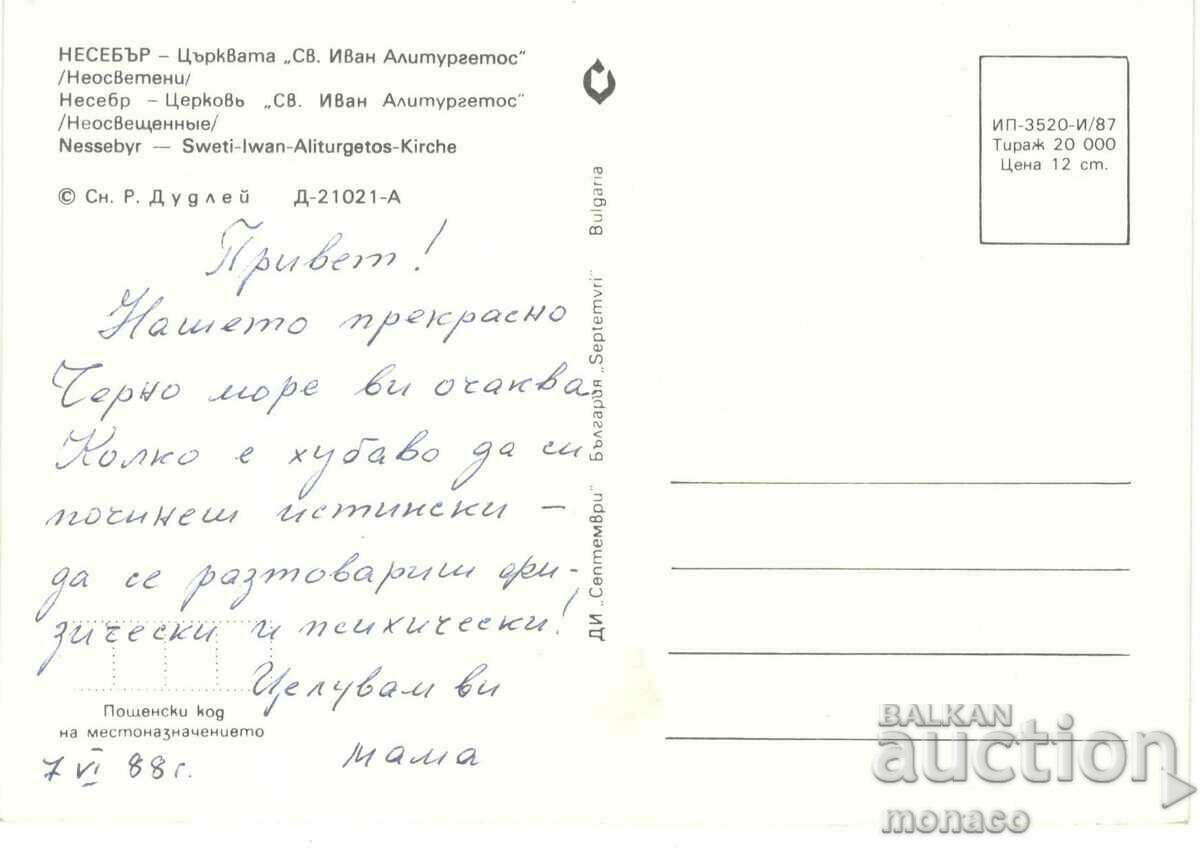 НЕСЕБЪР – Църквата „Св. Иван Алитургетос“
/Неосветени/
Несебр – Церковь „Св. Иван Алитургетос“
/Неосвещенные/
Nessebyr — Sweti-Iwan-Aliturgetos-Kirche
© Сн. Р. Дудлей Д-21021-А
Привет!
Нашето прекрасно
Черно море ви очаква.
Колко е хубаво да си
починеш истински –
да се разтовариш фи-
зически и психически!
Целувам ви
мама
Пощенски код
на местоназначението
7 VI 88 г.
ДИ „Септември“ България „Septemvri“ Bulgaria
ИП-3520-И/87
Тираж 20 000
Цена 12 ст.
BALKAN
auction
monaco